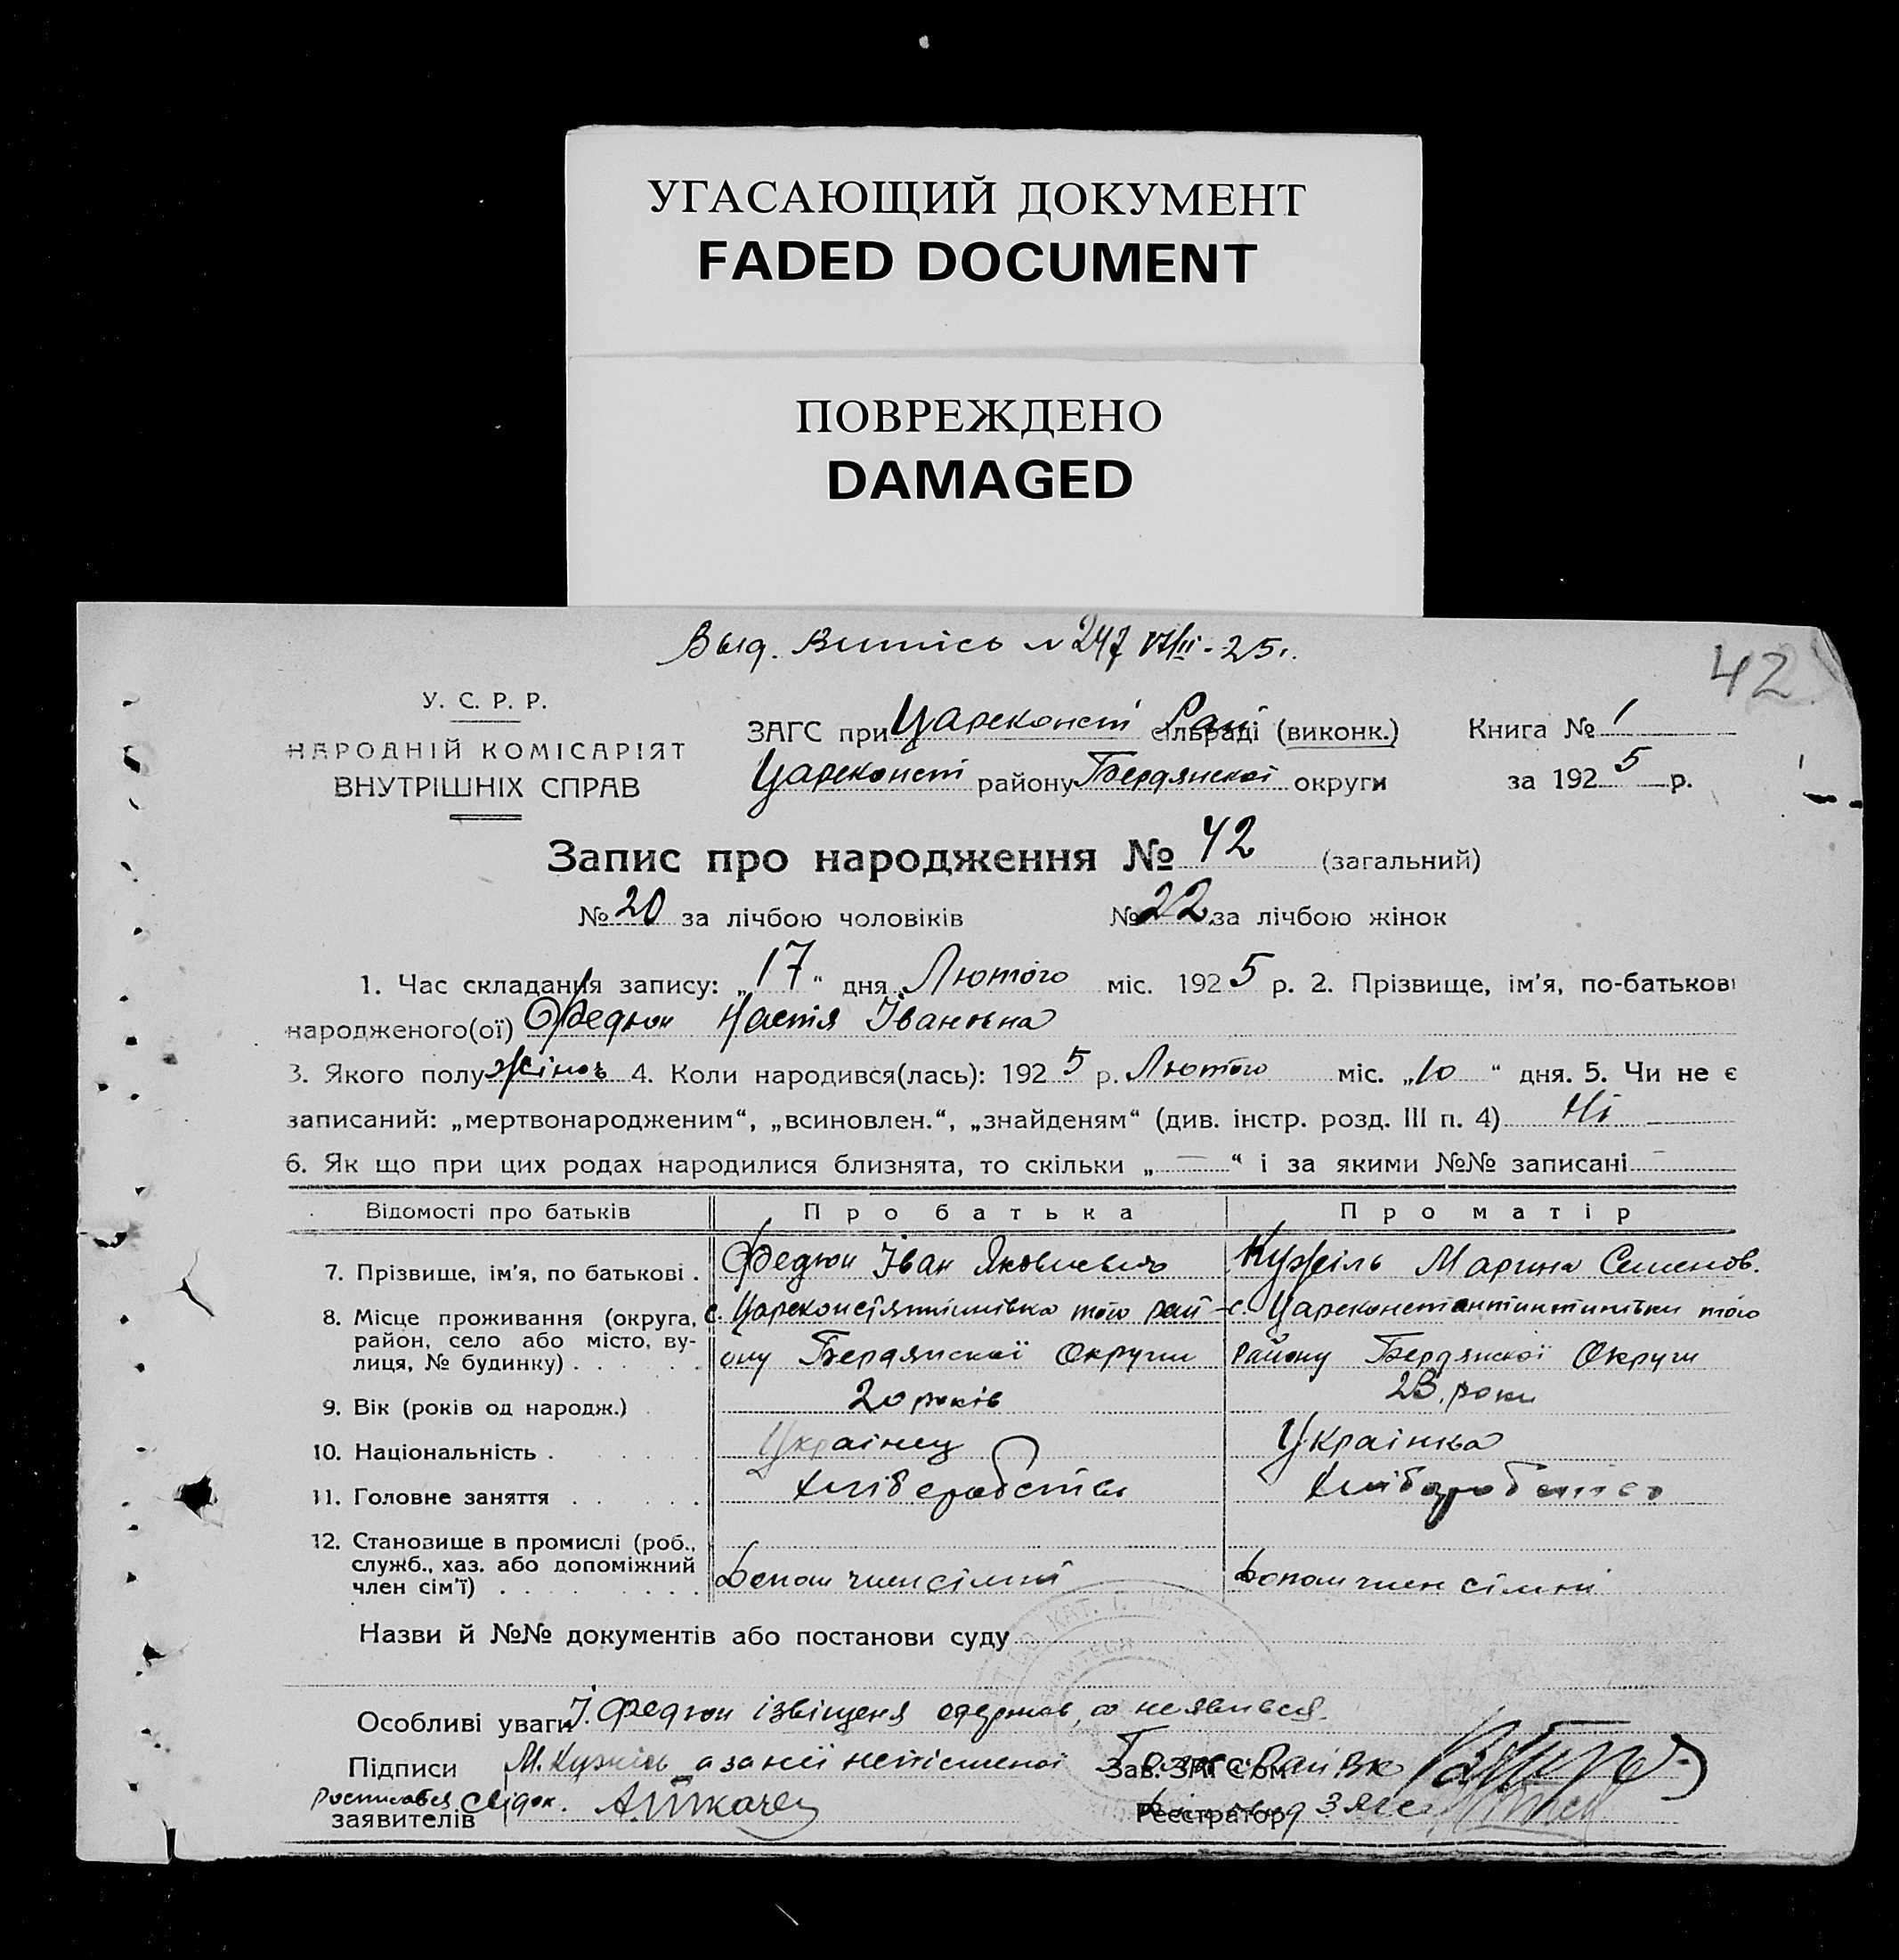 УГАСАЮЩИЙ ДОКУМЕНТ
FADED DOCUMENT
ПОВРЕЖДЕНО
DAMAGED
Выд. витись № 247 VII/II-25.
42
У. С. Р. Р.
НАРОДНІЙ КОМІСАРІЯТ
ВНУТРІШНІХ СПРАВ
ЗАГС при Цареконст Рай сільраді (виконк.) Книга № 1
Цареконст району Бердянскоі округи за 1925 р.
Запис про народження № 42 (загальний)
№ 20 за лічбою чоловіків № 22 за лічбою жінок
1. Час складання запису: „17“ дня Лютого міс. 1925 р. 2. Прізвище, ім'я, по-батькові
народженого(ої) Федюн Настія Івановна
3. Якого полу жіноч 4. Коли народився(лась): 1925 р. Лютого міс. „10“ дня. 5. Чи не є
записаний: „мертвонародженим“, „всиновлен.“, „знайденям“ (див. інстр. розд. III п. 4) Ні
6. Як що при цих родах народилися близнята, то скільки „—“ і за якими №№ записані —
Відомості про батьків Про батька Про матір
7. Прізвище, ім'я, по батькові . Федюн Іван Яковлевич Кужіль Марина Семенов.
8. Місце проживання (округа, с. Цареконстянтинівка того рай- с. Цареконстантинтинівки того
район, село або місто, ву-
лиця, № будинку) . . . . . . ону Бердянскої Округи Району Бердянскої Округи
9. Вік (років од народж.) 20 років 23. роки
10. Національність . Украінец Украінка
11. Головне заняття . . . . . хліборобство хліборобство
12. Становище в промислі (роб.,
служб., хаз. або допоміжний
член сім'ї) . . . . . . . . Допом член сімні Допом член сімні
Назви й №№ документів або постанови суду
Особливі уваги І. Федюн ізвіщеня одержав, а неявився.
Підписи М. Кужіль а за неі непісменоі Зав. ЗАГС'ом
Росписався Свідок. А. Ткачец
заявителів Реєстратор